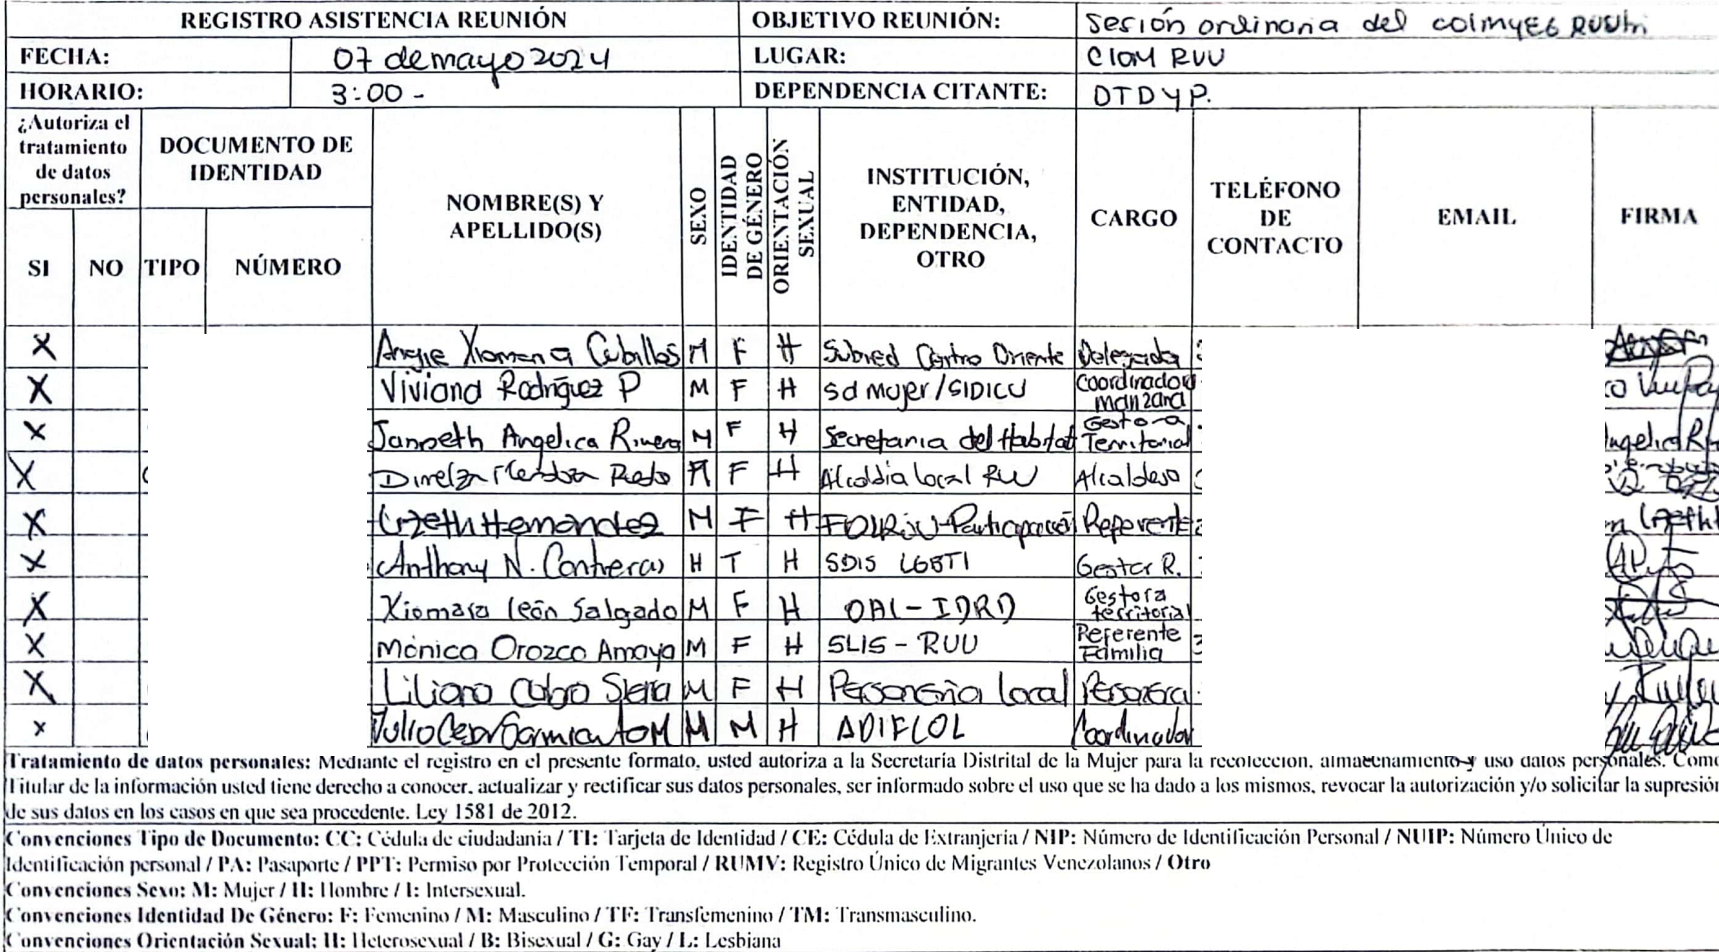 REGISTRO ASISTENCIA REUNIÓN OBJETIVO REUNIÓN: Sesión ordinaria del colmyEG RUU
FECHA: 07 de mayo 2024 LUGAR: CIOM RUU
HORARIO: 3:00 - DEPENDENCIA CITANTE: DTDyP.
¿Autoriza el tratamiento de datos personales? DOCUMENTO DE IDENTIDAD NOMBRE(S) Y APELLIDO(S) SEXO IDENTIDAD DE GÉNERO ORIENTACIÓN SEXUAL INSTITUCIÓN, ENTIDAD, DEPENDENCIA, OTRO CARGO TELÉFONO DE CONTACTO EMAIL FIRMA
SI NO TIPO NÚMERO
X Angie Xiomena Cubillos M F H Subred Centro Oriente Delegada
X Viviana Rodríguez P M F H sd mujer/SIDICU Coordinadora manzana
X Janneth Angelica Rivera M F H Secretaria del Habitat Gestora Territorial
X Prieto F H Alcaldia local RUU Alcaldesa
X Lizeth Hernandez M F H FDLRUU-Participación Referente
X Anthony N. Contreras H T H SDIS LGBTI Gestor R.
X Xiomara León Salgado M F H OAL-IDRD Gestora territorial
X Mónica Orozco Amaya M F H SLIS - RUU Referente Familia
X Liliana Cobo Sierra M F H Personería local Personera
X Julio Cesar Sarmiento M M M H ADIFLOL Coordinador
Tratamiento de datos personales: Mediante el registro en el presente formato, usted autoriza a la Secretaría Distrital de la Mujer para la recolección, almacenamiento y uso datos personales. Como
Titular de la información usted tiene derecho a conocer, actualizar y rectificar sus datos personales, ser informado sobre el uso que se ha dado a los mismos, revocar la autorización y/o solicitar la supresión
de sus datos en los casos en que sea procedente. Ley 1581 de 2012.
Convenciones Tipo de Documento: CC: Cédula de ciudadanía / TI: Tarjeta de Identidad / CE: Cédula de Extranjería / NIP: Número de Identificación Personal / NUIP: Número Único de
Identificación personal / PA: Pasaporte / PPT: Permiso por Protección Temporal / RUMV: Registro Único de Migrantes Venezolanos / Otro
Convenciones Sexo: M: Mujer / H: Hombre / I: Intersexual.
Convenciones Identidad De Género: F: Femenino / M: Masculino / TF: Transfemenino / TM: Transmasculino.
Convenciones Orientación Sexual: H: Heterosexual / B: Bisexual / G: Gay / L: Lesbiana